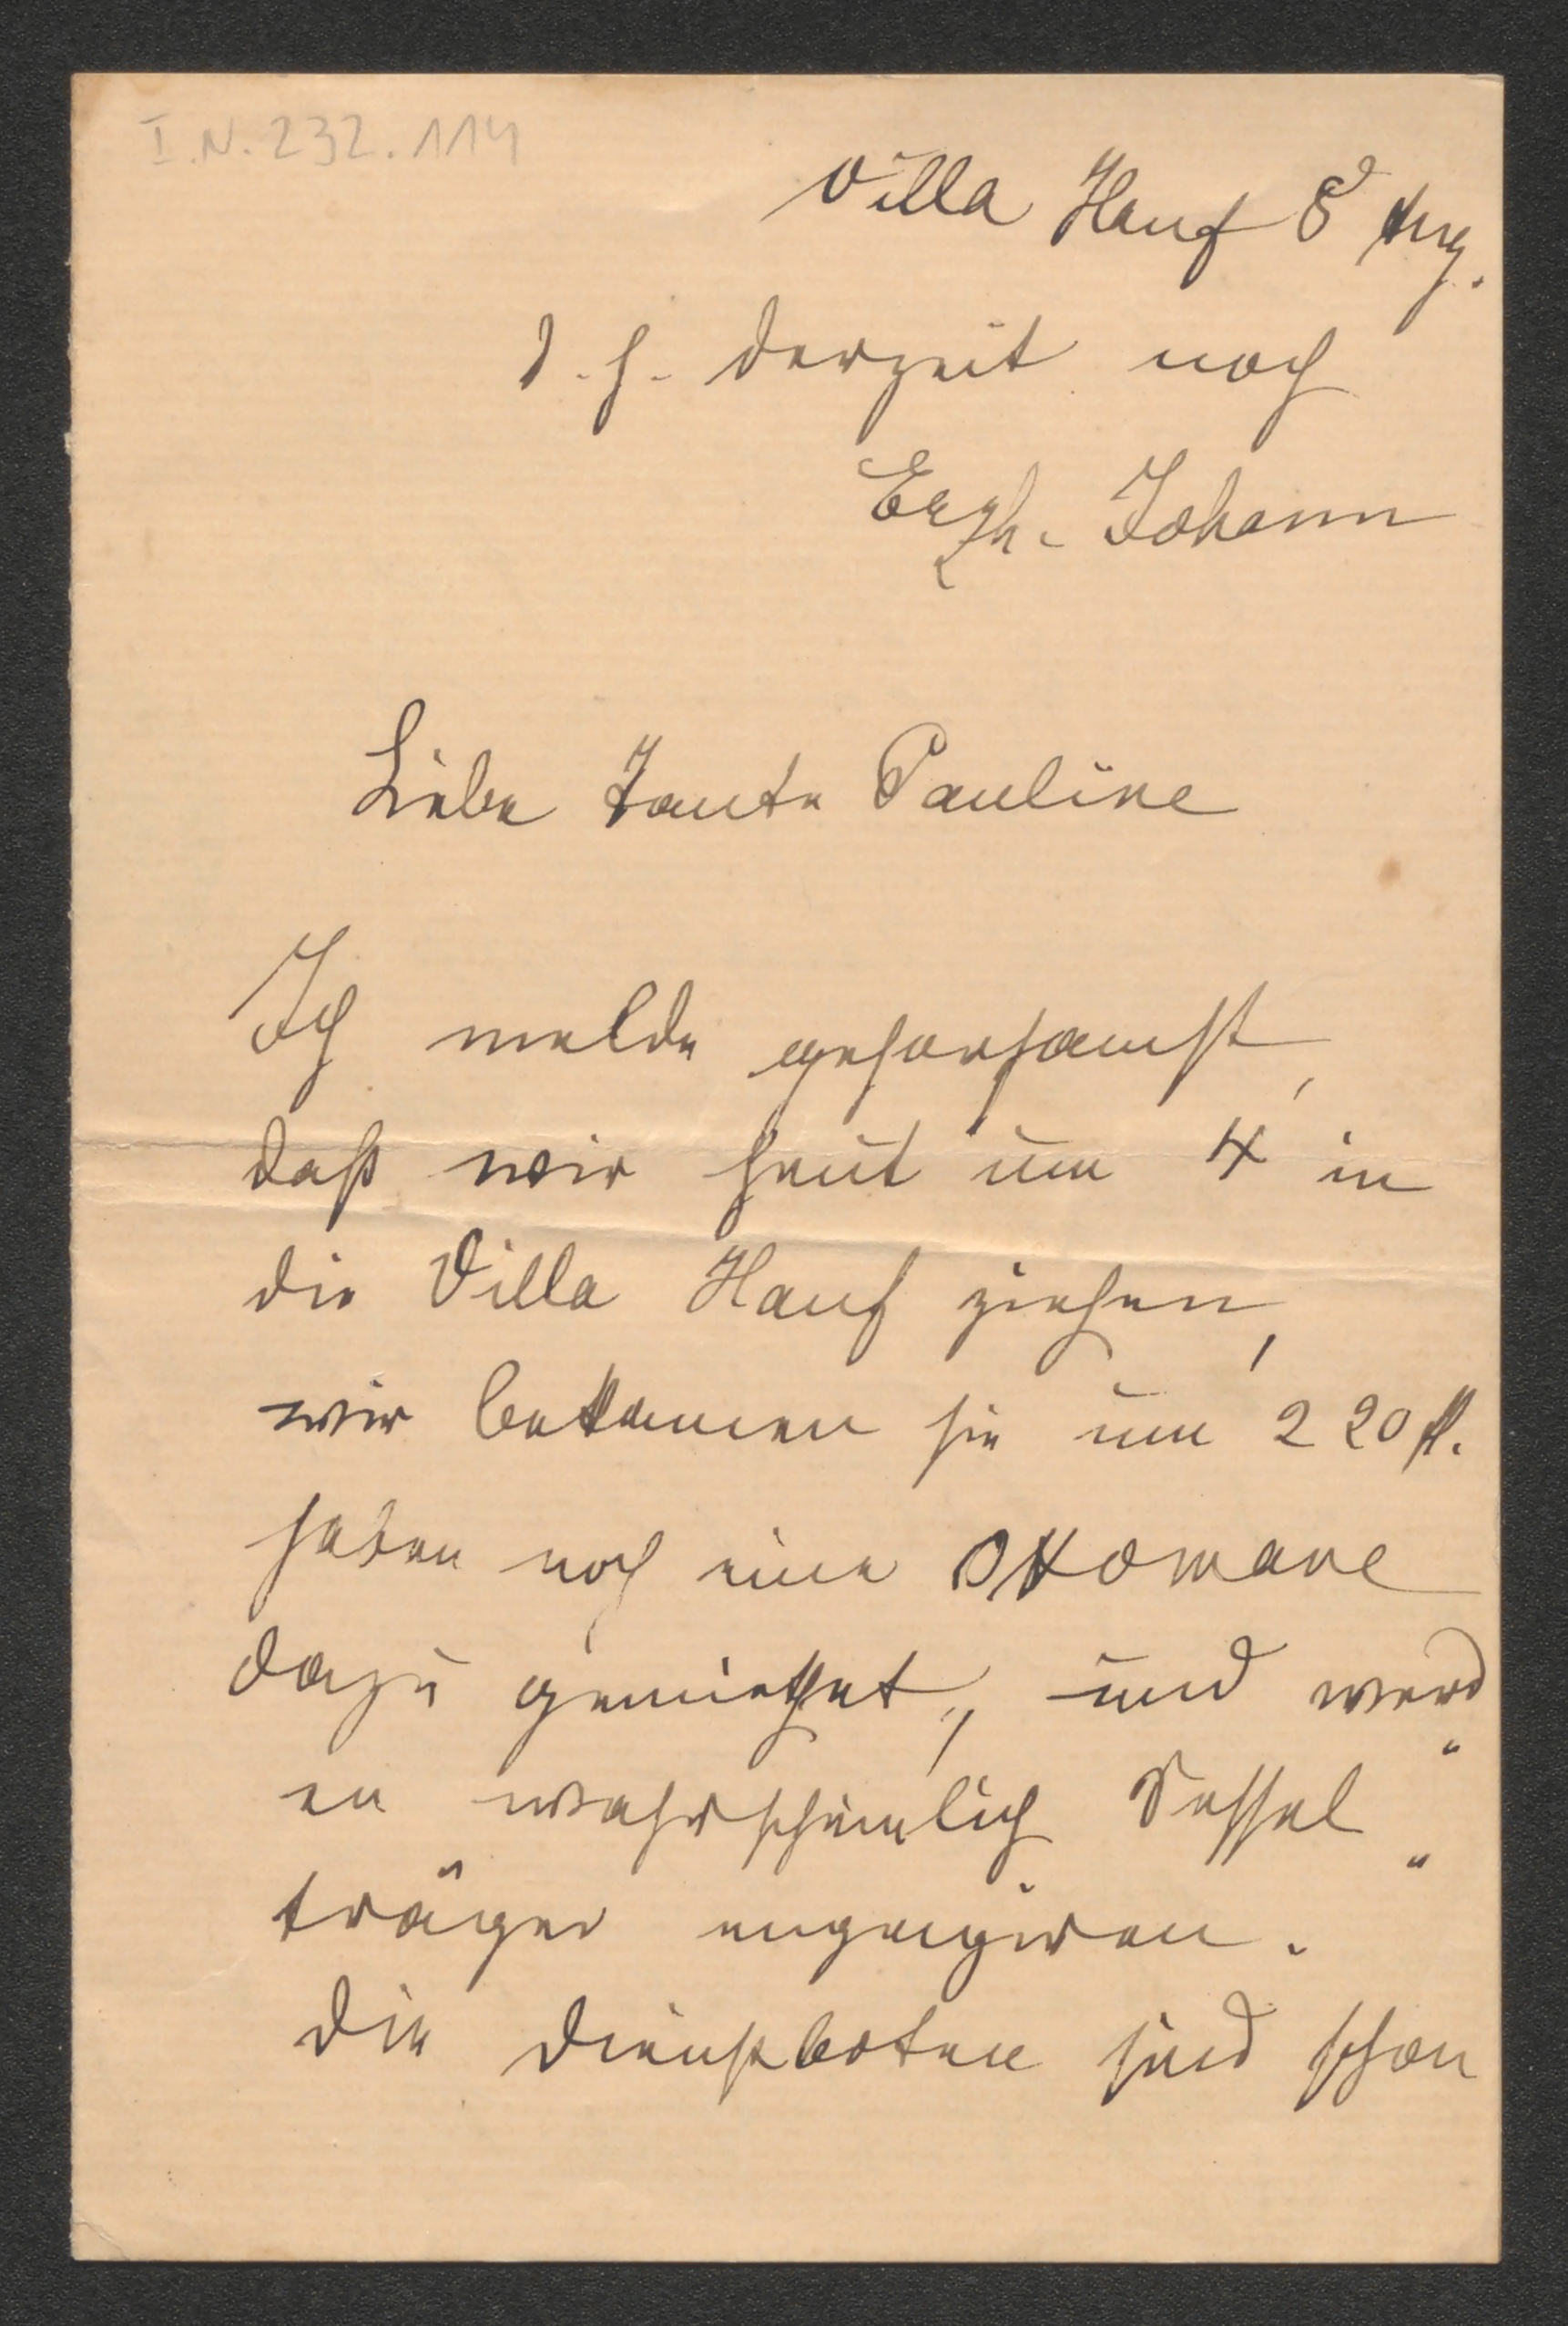 I.N. 232.114
Villa Hauf 8 Aug.
d. h. derzeit noch
Erzh. Johann
Liebe Tante Pauline
Ich melde gehorsamst,
daß wir heut um 4 in
die Villa Hauf ziehen,
wir bekamen sie um 220 fl.
haben noch eine Ottomane
dazu gemiethet, und werd
en wahrscheinlich Sessel"
träger engagiren.
Die Dienstboten sind schon